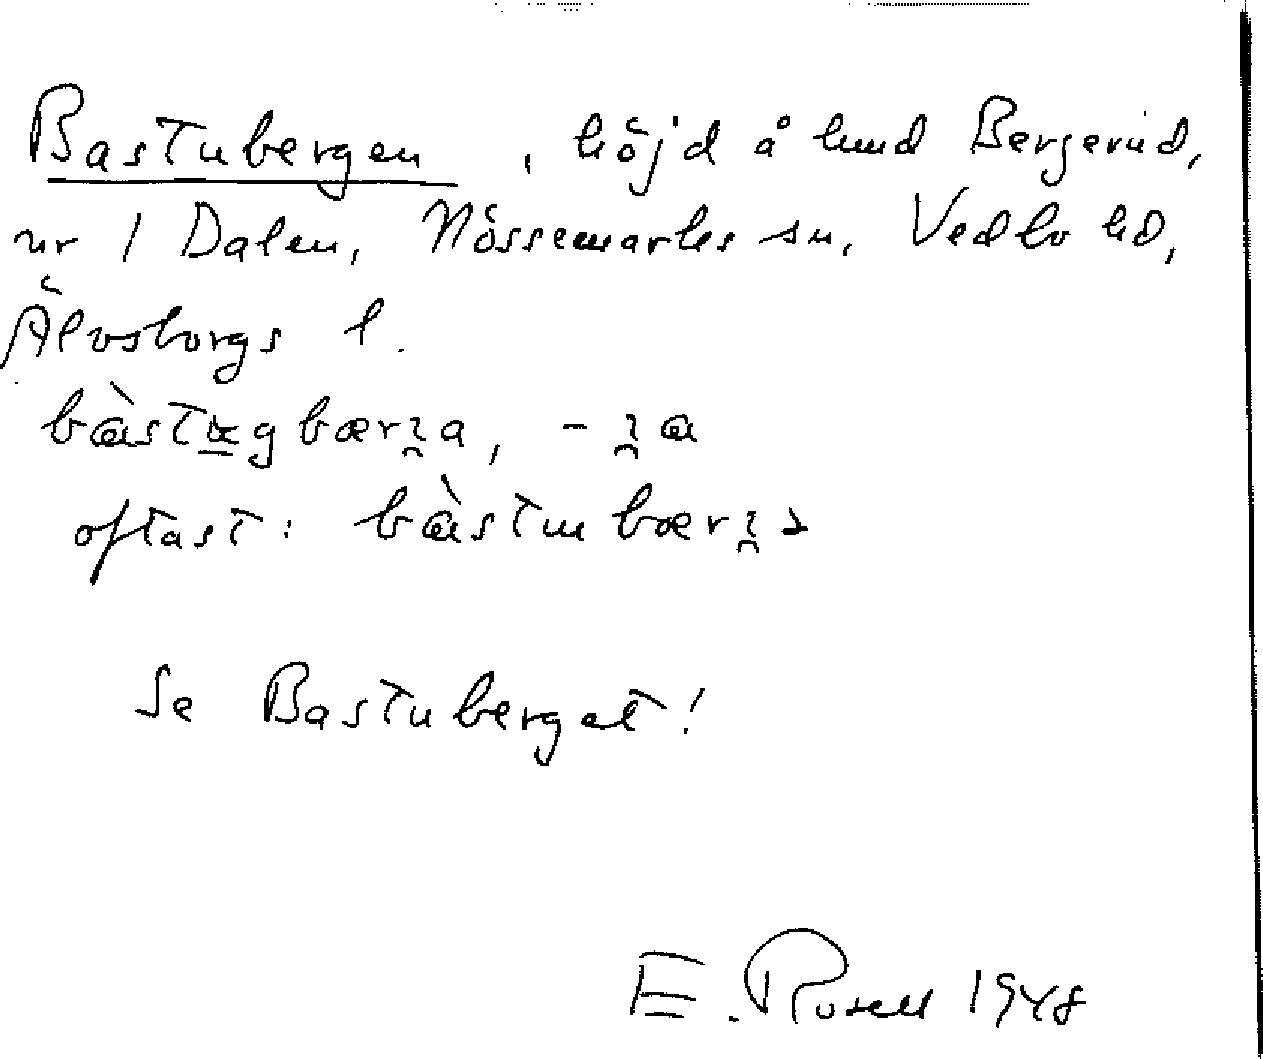 Bastubergen, höjd å hmd Bergerud,
nr 1 Dalen, Nössemarks sn, Vedbo hd,
Älvsborgs l.
oftast:
Se Bastuberget!
E. Rosell 1948